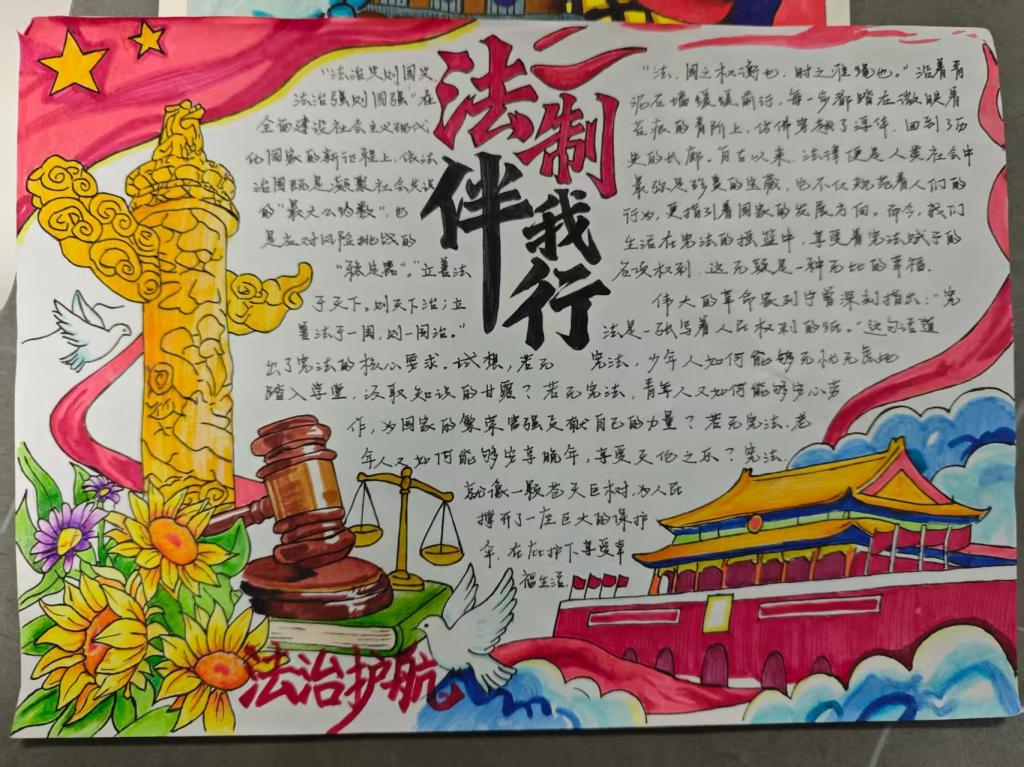 法制
伴我行
"法准失则国失,
法治强则国强"在
全面建设社会主义现代
化国家的新征程上,依法
治国既是凝聚社会共识
的"最大公约数",也
是应对风险挑战的
"稳定器"。"立善法
于天下,则天下治;立
善法于一国,则一国治。"
"法,国之权衡也,时之准绳也。"沿着青
泥石墙缓缓前行,每一步都踏在微映着
苔痕的青阶上,仿佛穿越了浮伴,回到历
史的长廊。自古以来,法律便是人类社会中
最弥足珍贵的宝藏,它不仅规范着人们的
行为,更指引着国家的发展方向。而今,我们
生活在宪法的摇篮中,享受着宪法赋予的
各项权利,这无疑是一种无比的幸福。
伟大的革命家列宁曾深刻指出:"宪
法是一张写着人民权利的纸。"这句话道
出了宪法的核心要求。试想,若无宪法,少年人如何能够无忧无虑地
踏入学堂,汲取知识的甘露?若无宪法,青年人又如何能够安心劳
作,为国家的繁荣富强贡献自己的力量?若无宪法,老
年人又如何能够安享晚年,享受天伦之乐?宪法,
就像一颗苍天巨树,为人民
撑开了一座巨大的保护
伞,在庇护下享受幸
福生活.
法治护航